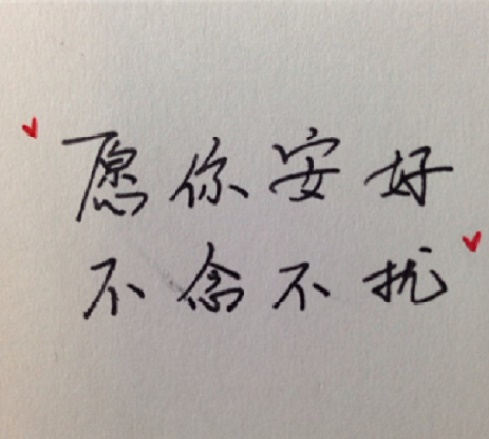 愿你安好
不念不扰